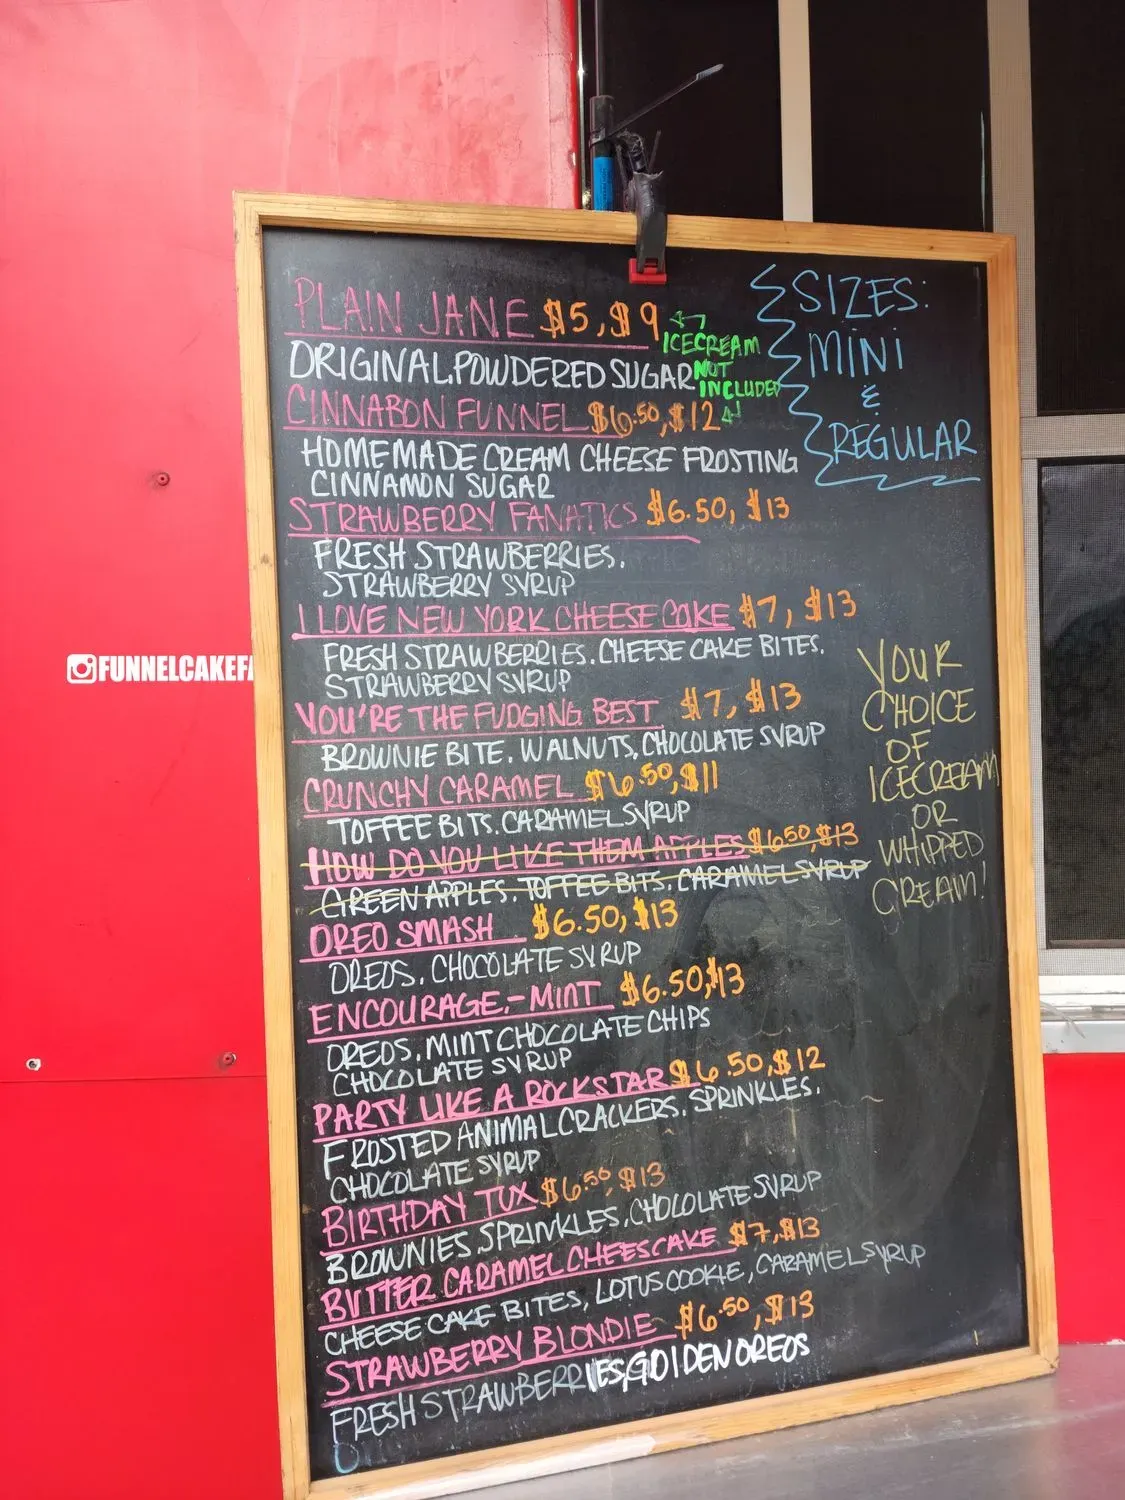 PLAIN JANE $5, $9
ICECREAM
NOT
INCLUDED
ORIGINAL. POWDERED SUGAR
CINNABON FUNNEL $6.50, $12
HOMEMADE CREAM CHEESE FROSTING
CINNAMON SUGAR
STRAWBERRY FANATICS $6.50, $13
FRESH STRAWBERRIES.
STRAWBERRY SYRUP
I LOVE NEW YORK CHEESE CAKE $7, $13
FRESH STRAWBERRIES. CHEESE CAKE BITES.
STRAWBERRY SYRUP
YOU'RE THE FUDGING BEST $7, $13
BROWNIE BITE. WALNUTS, CHOCOLATE SYRUP
CRUNCHY CARAMEL $6.50, $11
TOFFEE BITS. CARAMEL SYRUP
HOW DO YOU LIKE THEM APPLES $6.50, $13
GREEN APPLES. TOFFEE BITS. CARAMEL SYRUP
OREO SMASH $6.50, $13
OREOS. CHOCOLATE SYRUP
ENCOURAGE-MINT $6.50, $13
OREOS. MINT CHOCOLATE CHIPS
CHOCOLATE SYRUP
PARTY LIKE A ROCKSTAR $6.50, $12
FROSTED ANIMAL CRACKERS. SPRINKLES.
CHOCOLATE SYRUP
BIRTHDAY TUX $6.50, $13
BROWNIES, SPRINKLES, CHOCOLATE SYRUP
BUTTER CARAMEL CHEESCAKE $7, $13
CHEESE CAKE BITES, LOTUS COOKIE, CARAMEL SYRUP
STRAWBERRY BLONDIE $6.50, $13
FRESH STRAWBERRIES, GOLDEN OREOS
SIZES:
MINI
&
REGULAR
YOUR
CHOICE
OF
ICECREAM
OR
WHIPPED
CREAM!
FUNNELCAKEFA